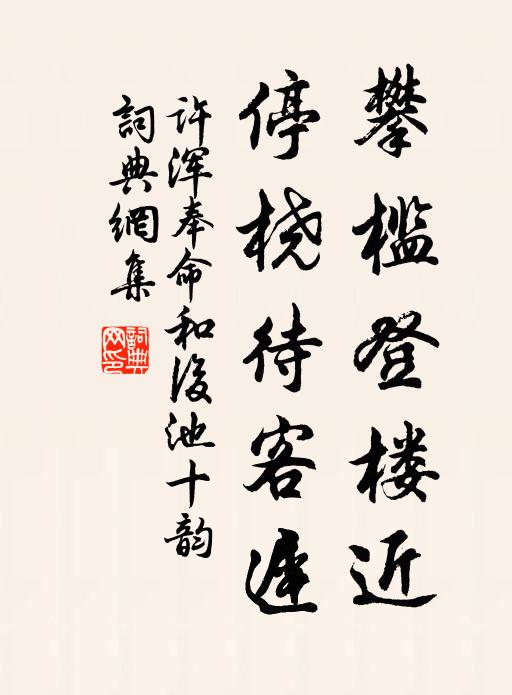 攀檻登楼近
停桡待客遲
许浑奉命和後池十韵
詞典網集
詞典网印